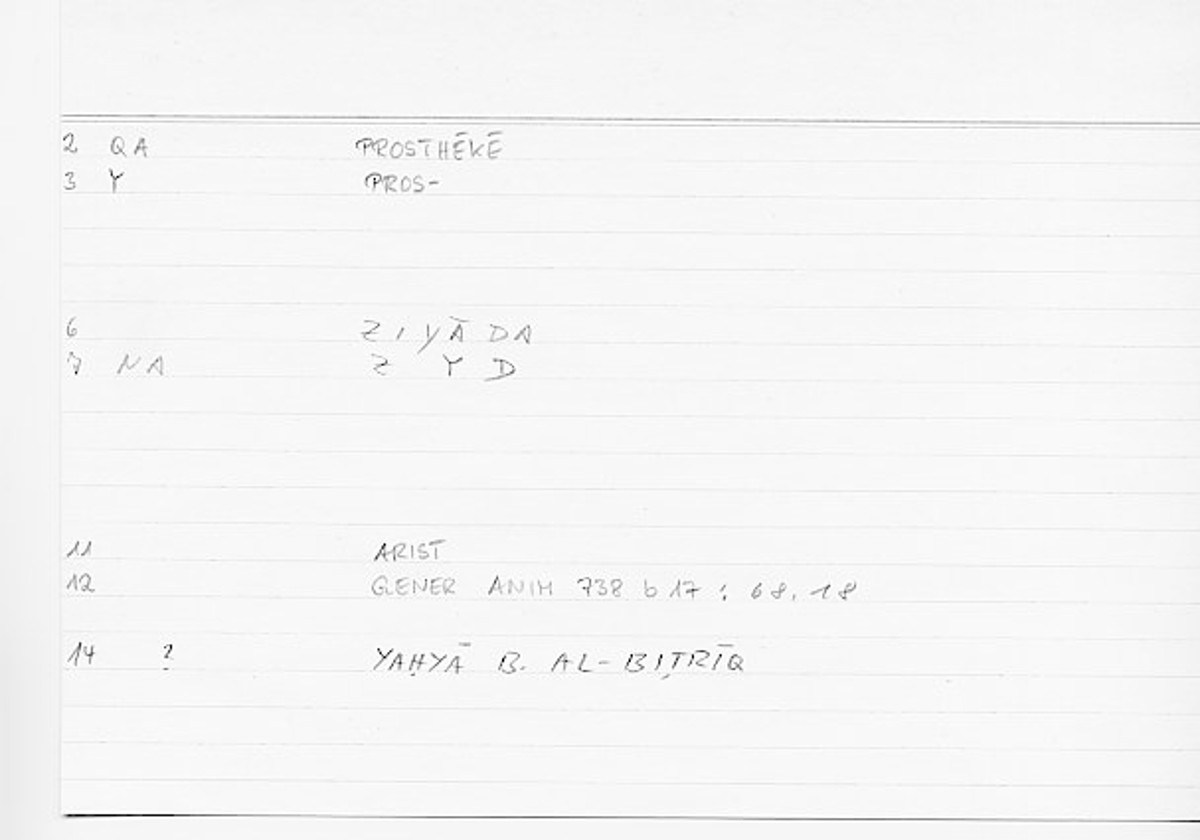 2 QA PROSTHĒKĒ
3 Y PROS-
6 ZIYĀDA
7 NA Z Y D
11 ARIST
12 GENER ANIM 738 b 17 ; 68,18
14 ? YAḤYĀ B. AL-BIṬRĪQ